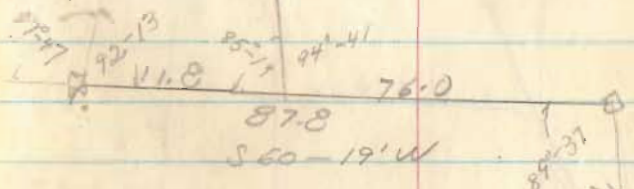 92-13
85-19
94-41
11.8
76.0
87.8
S 60-19' W
84-37